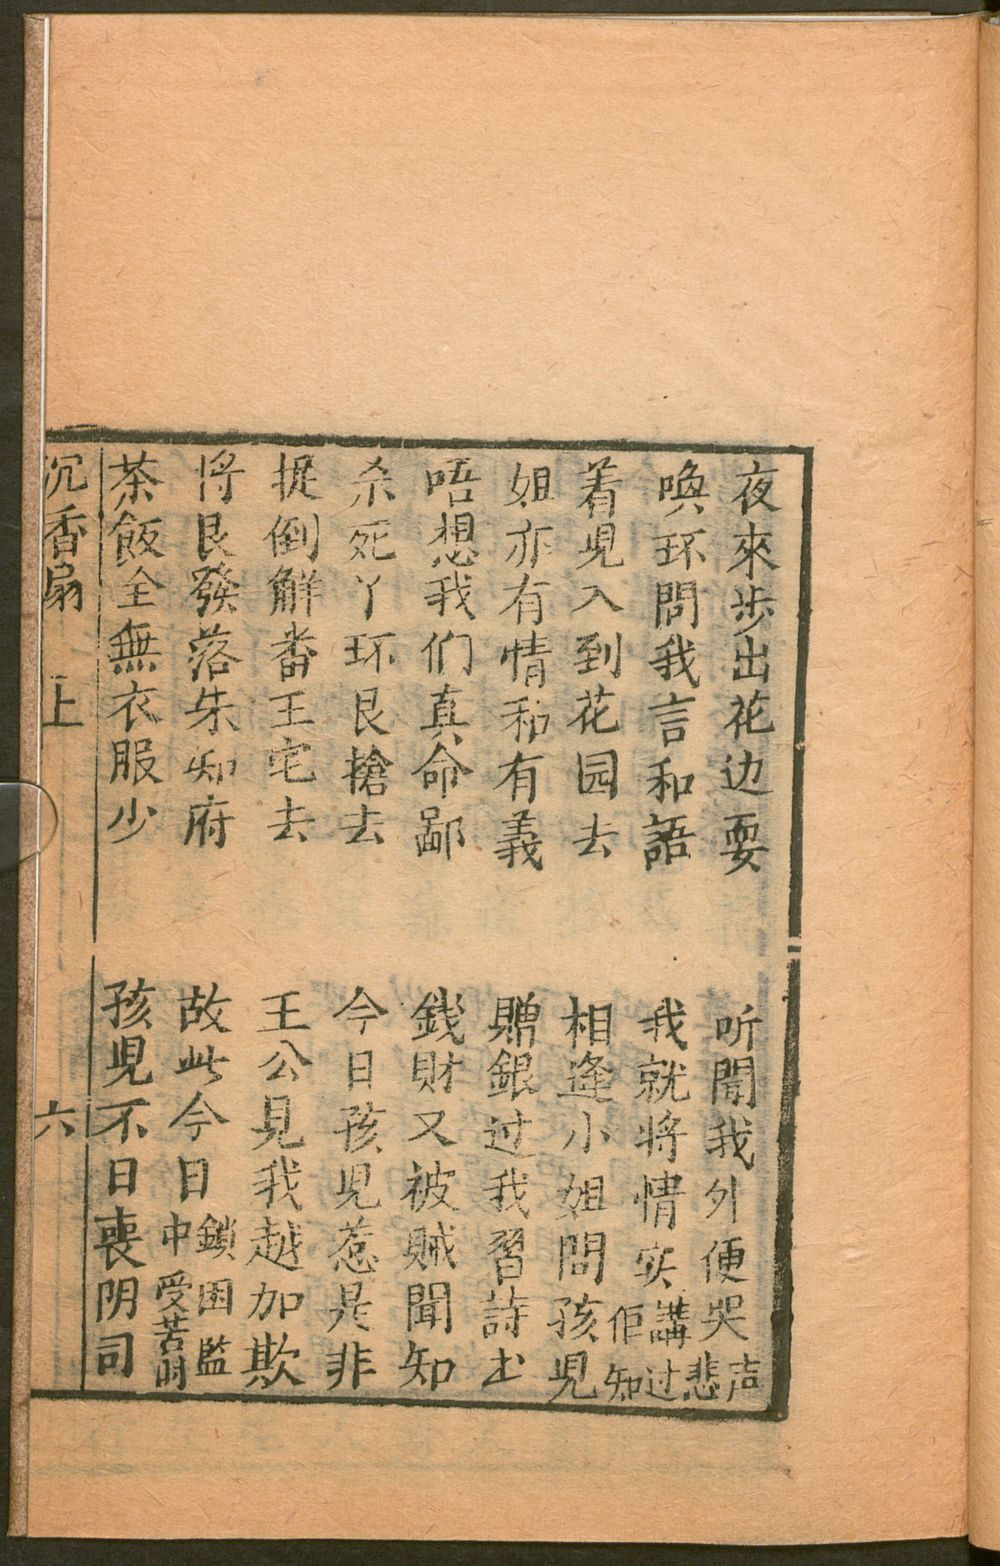 夜來步出花边耍　听聞我外便哭声悲
喚环問我言和語　我就将情实講过佢知
着児入到花园去　相逢小姐問孩児
姐亦有情和有義　贈銀过我習詩书
唔想我们真命鄙　銭財又被贼聞知
杀死丫环艮搶去　今日孩児惹是非
捉倒解番王宅去　王公見我越加欺
将艮發落朱知府　故此今日鎖困監中受苦时
茶飯全無衣服少　孩児不日喪阴司
沉香扇　上　六